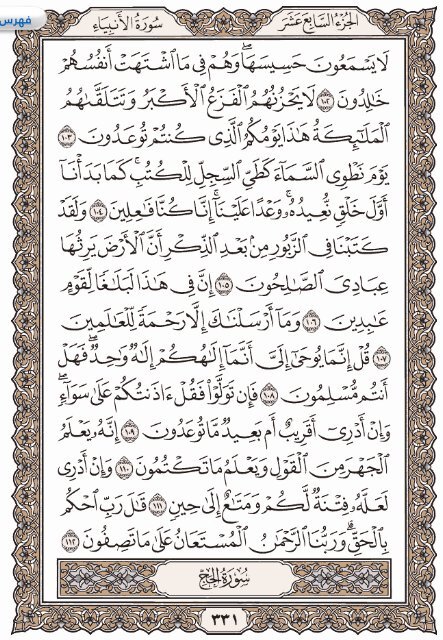 فهرس
سُورَةُ الأَنبِيَاء
الجُزءُ السَّابِعَ عَشَرَ
لَا يَسْمَعُونَ حَسِيسَهَا ۖ وَهُمْ فِي مَا ٱشْتَهَتْ أَنفُسُهُمْ
خَٰلِدُونَ ١٠٢ لَا يَحْزُنُهُمُ ٱلْفَزَعُ ٱلْأَكْبَرُ وَتَتَلَقَّىٰهُمُ
ٱلْمَلَٰٓئِكَةُ هَٰذَا يَوْمُكُمُ ٱلَّذِي كُنتُمْ تُوعَدُونَ ١٠٣
يَوْمَ نَطْوِي ٱلسَّمَآءَ كَطَيِّ ٱلسِّجِلِّ لِلْكُتُبِ ۚ كَمَا بَدَأْنَآ
أَوَّلَ خَلْقٍ نُّعِيدُهُۥ ۚ وَعْدًا عَلَيْنَآ ۚ إِنَّا كُنَّا فَٰعِلِينَ ١٠٤ وَلَقَدْ
كَتَبْنَا فِي ٱلزَّبُورِ مِنۢ بَعْدِ ٱلذِّكْرِ أَنَّ ٱلْأَرْضَ يَرِثُهَا
عِبَادِيَ ٱلصَّٰلِحُونَ ١٠٥ إِنَّ فِي هَٰذَا لَبَلَٰغًا لِّقَوْمٍ
عَٰبِدِينَ ١٠٦ وَمَآ أَرْسَلْنَٰكَ إِلَّا رَحْمَةً لِّلْعَٰلَمِينَ
١٠٧ قُلْ إِنَّمَا يُوحَىٰٓ إِلَيَّ أَنَّمَآ إِلَٰهُكُمْ إِلَٰهٌ وَٰحِدٌ ۖ فَهَلْ
أَنتُم مُّسْلِمُونَ ١٠٨ فَإِن تَوَلَّوْا۟ فَقُلْ ءَاذَنتُكُمْ عَلَىٰ سَوَآءٍ ۖ
وَإِنْ أَدْرِيٓ أَقَرِيبٌ أَم بَعِيدٌ مَّا تُوعَدُونَ ١٠٩ إِنَّهُۥ يَعْلَمُ
ٱلْجَهْرَ مِنَ ٱلْقَوْلِ وَيَعْلَمُ مَا تَكْتُمُونَ ١١٠ وَإِنْ أَدْرِي
لَعَلَّهُۥ فِتْنَةٌ لَّكُمْ وَمَتَٰعٌ إِلَىٰ حِينٍ ١١١ قَٰلَ رَبِّ ٱحْكُم
بِٱلْحَقِّ ۗ وَرَبُّنَا ٱلرَّحْمَٰنُ ٱلْمُسْتَعَانُ عَلَىٰ مَا تَصِفُونَ ١١٢
سُورَةُ الحَجِّ
٣٣١